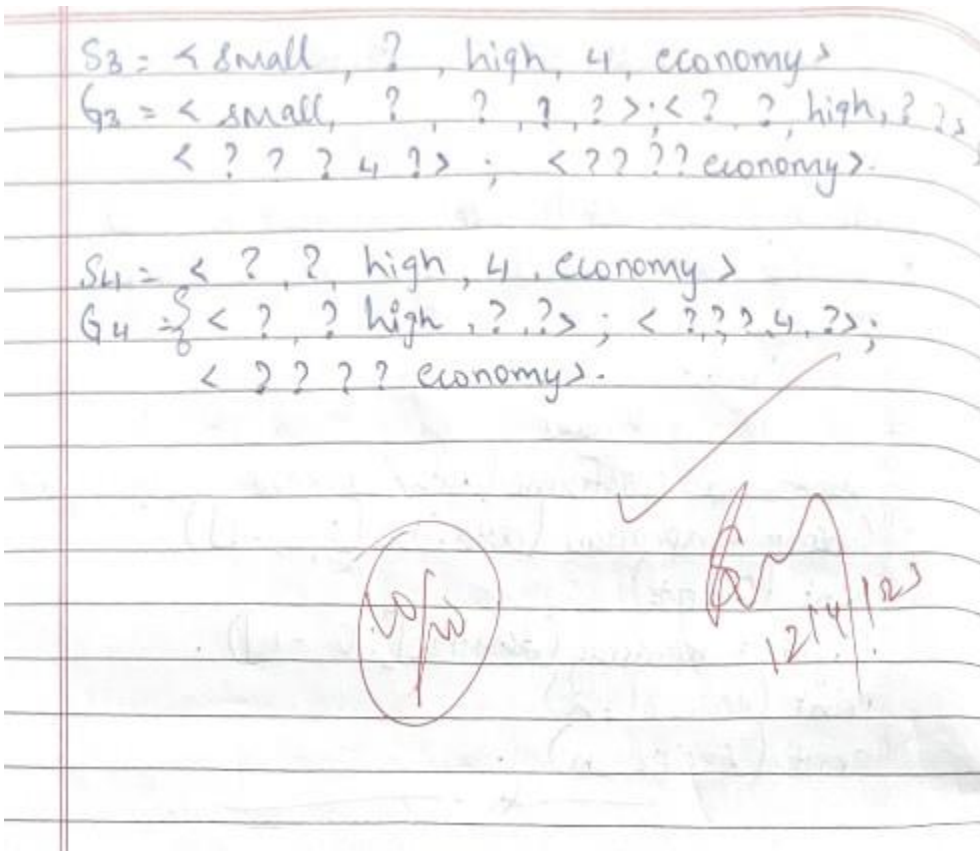 S3 = < small, ?, high, 4, economy>
G3 = < small, ?, ?, ?, ?>; < ?, ?, high, ? ?>
< ? ? ? 4 ?> ; < ? ? ? ? economy>.
S4 = < ?, ?, high, 4, economy>
G4 = { < ?, ? high, ?, ?>; < ?, ?, ?, 4, ?>;
< ? ? ? ? economy>.
12/4/23